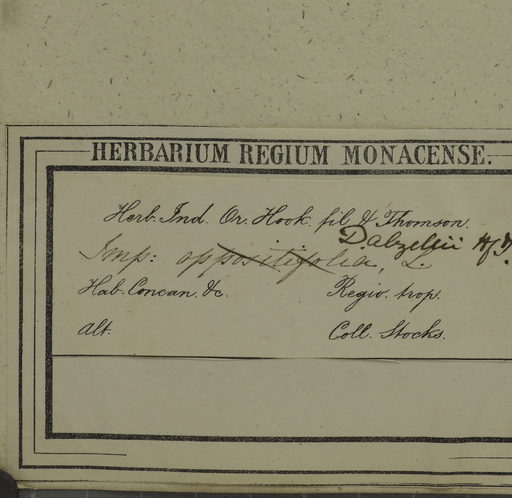 HERBARIUM REGIUM MONACENSE.
Herb. Ind. Or. Hook. fil & Thomson.
Dalzellii Hf&T.
Imp: oppositifolia, L.
Hab. Concan. &c. Regio. trop.
Alt. Coll. Stocks.